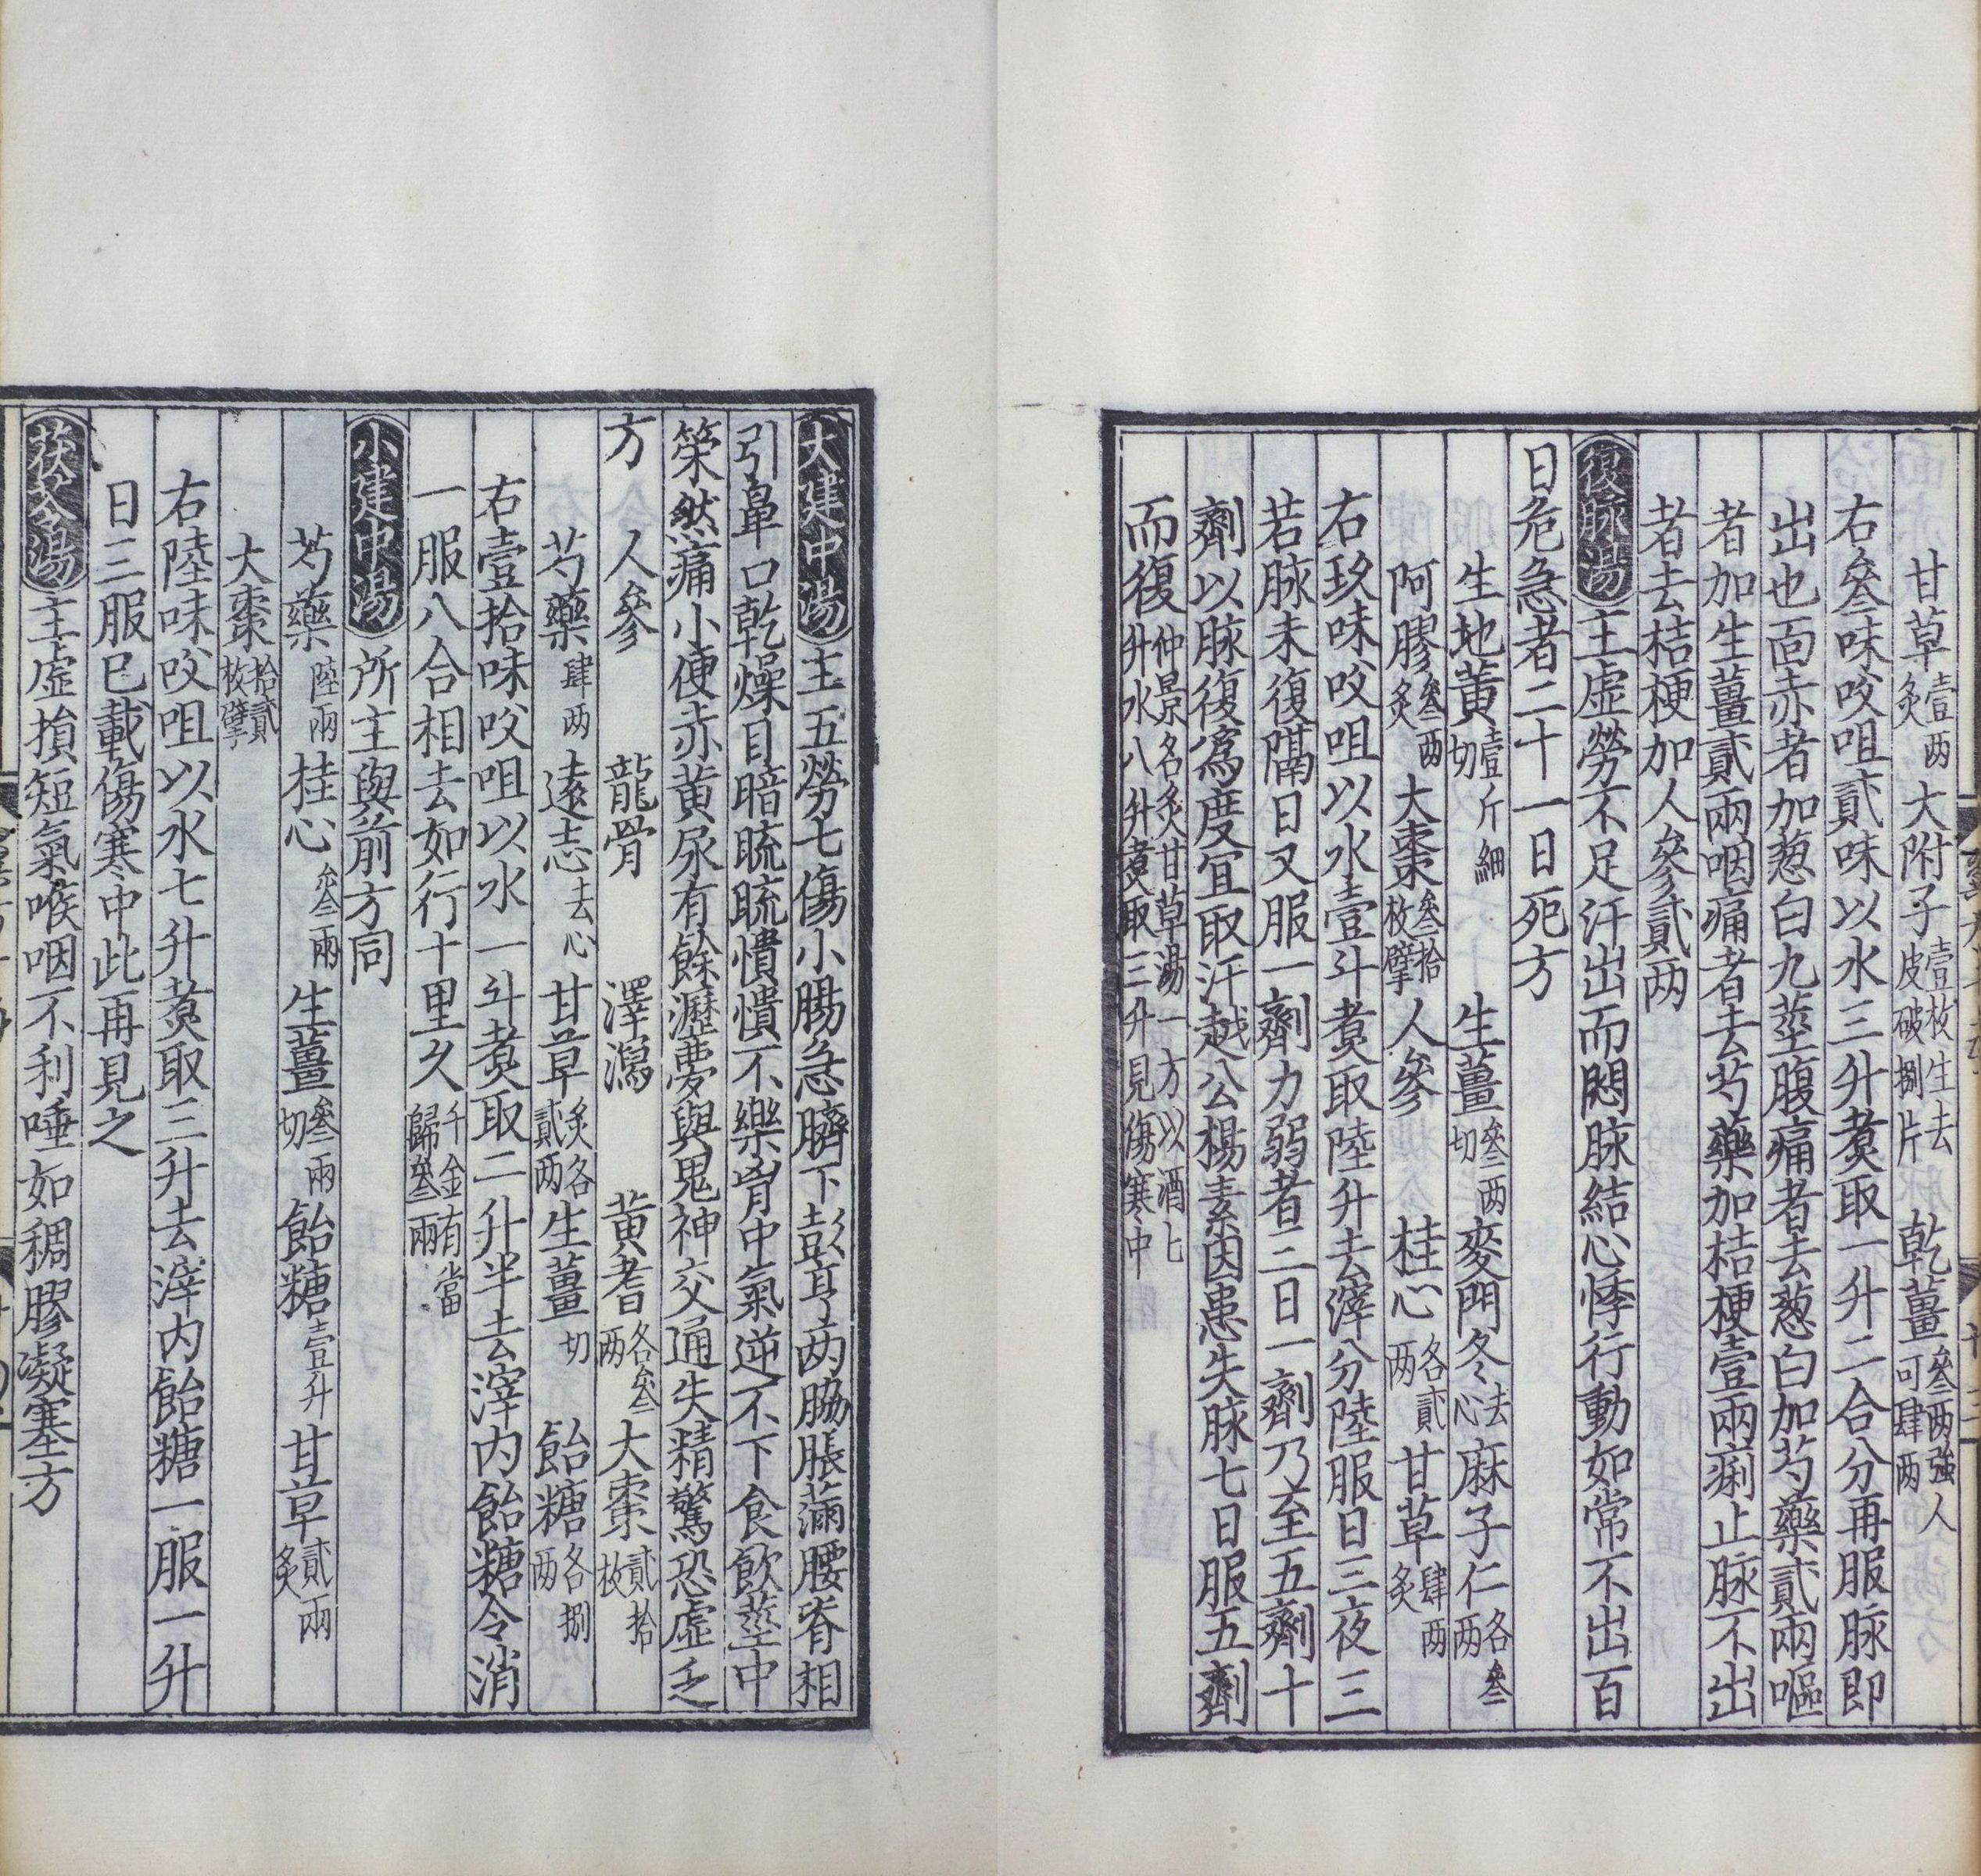 甘草壹两炙大附子壹枚生去皮破捌片乾薑叁两強人可肆两
右叁味㕮咀貳味以水三升煑取一升二合分再服脉即
出也面赤者加葱白九莖腹痛者去葱白加芍藥貳兩嘔
者加生薑貳兩咽痛者去芍藥加桔梗壹兩痢止脉不出
者去桔梗加人參貳两
復脉湯主虛勞不足汗出而悶脉結心悸行動如常不出百
日危急者二十一日死方
生地黄壹斤細切生薑叁两切麥門冬去心麻子仁各叁两
阿膠叁两炙大棗叁拾枚擘人參桂心各貳两甘草肆两炙
右玖味㕮咀以水壹斗煑取陸升去滓分陸服日三夜三
若脉未復隔日又服一劑力弱者三日一劑乃至五劑十
劑以脉復爲度宜取汗越公楊素因患失脉七日服五劑
而復仲景名炙甘草湯一方以酒七升水八升煑取三升見傷寒中
大建中湯主五勞七傷小腸急臍下彭亨两脇脹滿腰脊相
引鼻口乾燥目暗䀮䀮憒憒不樂胷中氣逆不下食飲莖中
策然痛小便赤黄尿有餘瀝夢與鬼神交通失精驚恐虛乏
方人參龍骨澤瀉黄耆各叁两大棗貳拾枚
芍藥肆两遠志去心甘草炙各貳两生薑切飴糖各捌两
右壹拾味㕮咀以水一斗煑取二升半去滓内飴糖令消
一服八合相去如行十里久千金有當歸叁兩
小建中湯所主與前方同
芍藥陸兩桂心叁兩生薑叁兩切飴糖壹升甘草貳兩炙
大棗拾貳枚擘
右陸味㕮咀以水七升煑取三升去滓内飴糖一服一升
日三服已載傷寒中此再見之
茯苓湯主虛損短氣喉咽不利唾如稠膠凝塞方